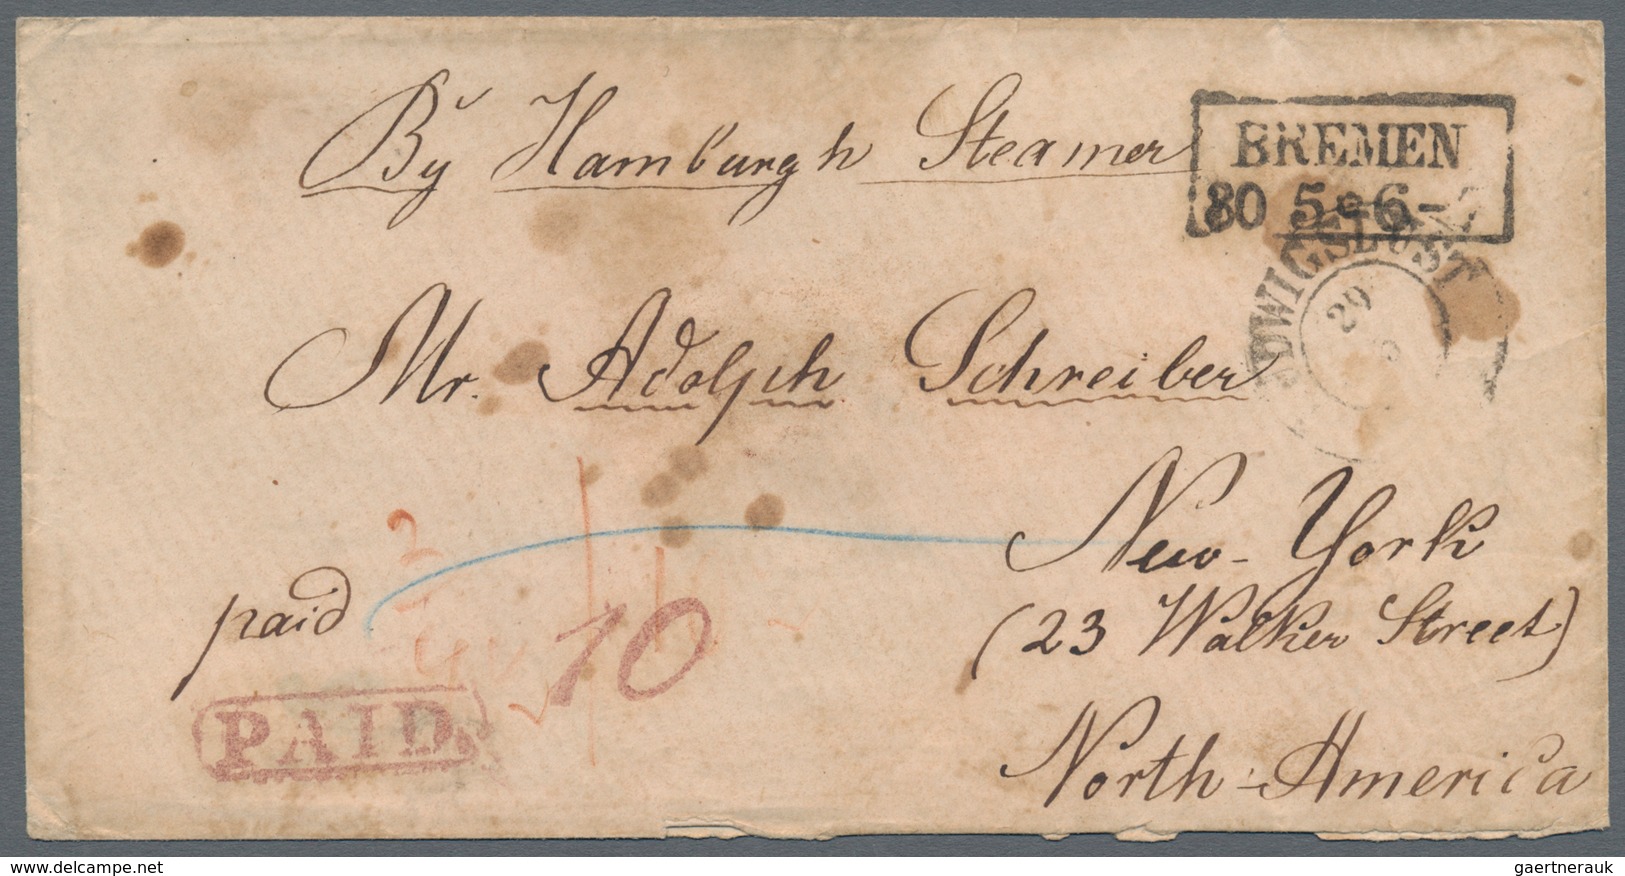 By Hamburgh Steamer
BREMEN
30 5 * 6 -
LUDWIGSLUST
29
Mr. Adolph Schreiber
New-York
(23 Walker Street)
North-America
paid
10
PAID.
www.delcampe.net
gaertnerauk